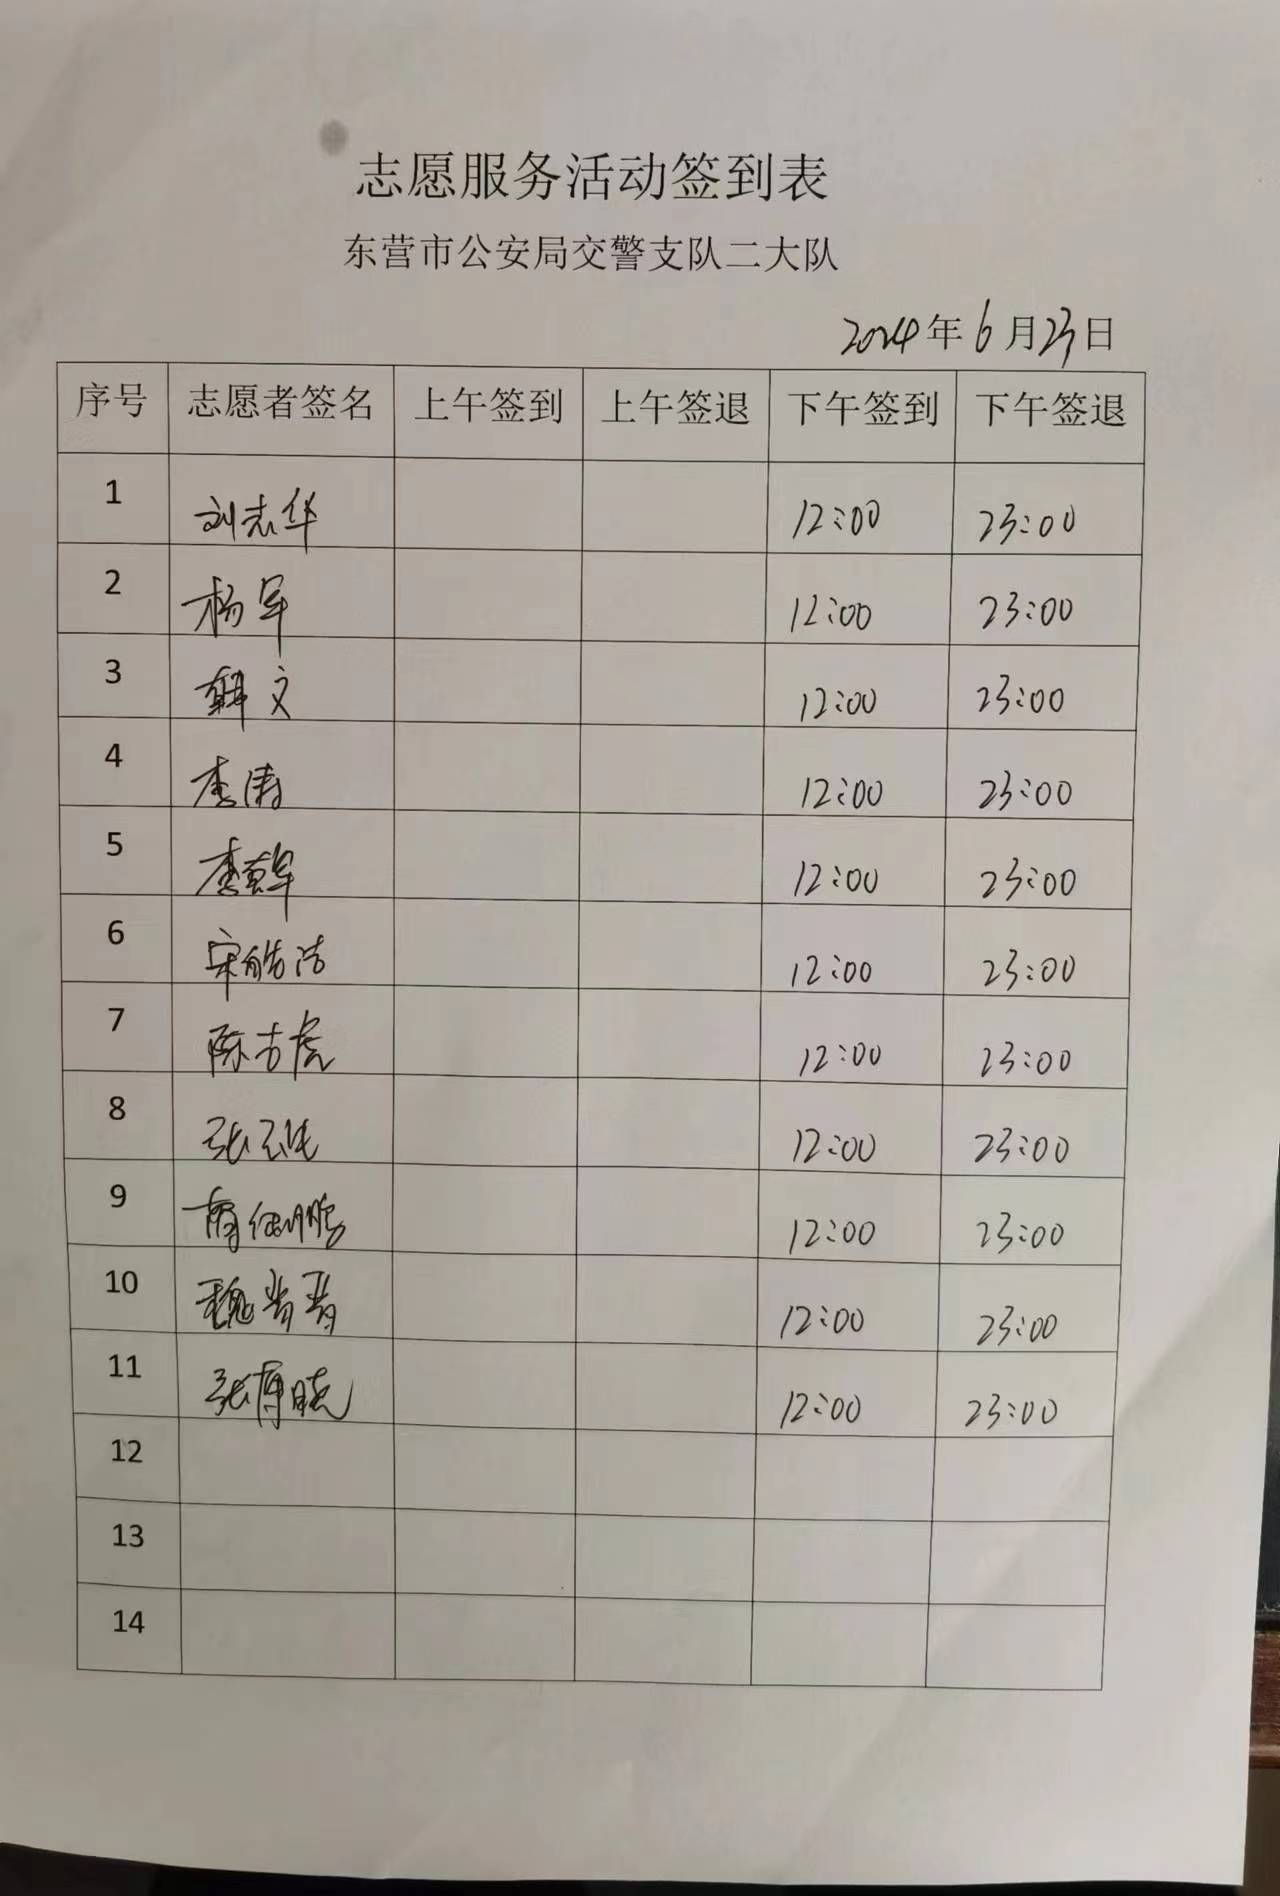 志愿服务活动签到表
东营市公安局交警支队二大队
2024年6月23日
序号 志愿者签名 上午签到 上午签退 下午签到 下午签退
1 刘志华 12:00 23:00
2 杨军 12:00 23:00
3 韩文 12:00 23:00
4 李涛 12:00 23:00
5 李英军 12:00 23:00
6 宋皓洁 12:00 23:00
7 陈吉虎 12:00 23:00
8 12:00 23:00
9 12:00 23:00
10 12:00 23:00
11 张博晓 12:00 23:00
12
13
14